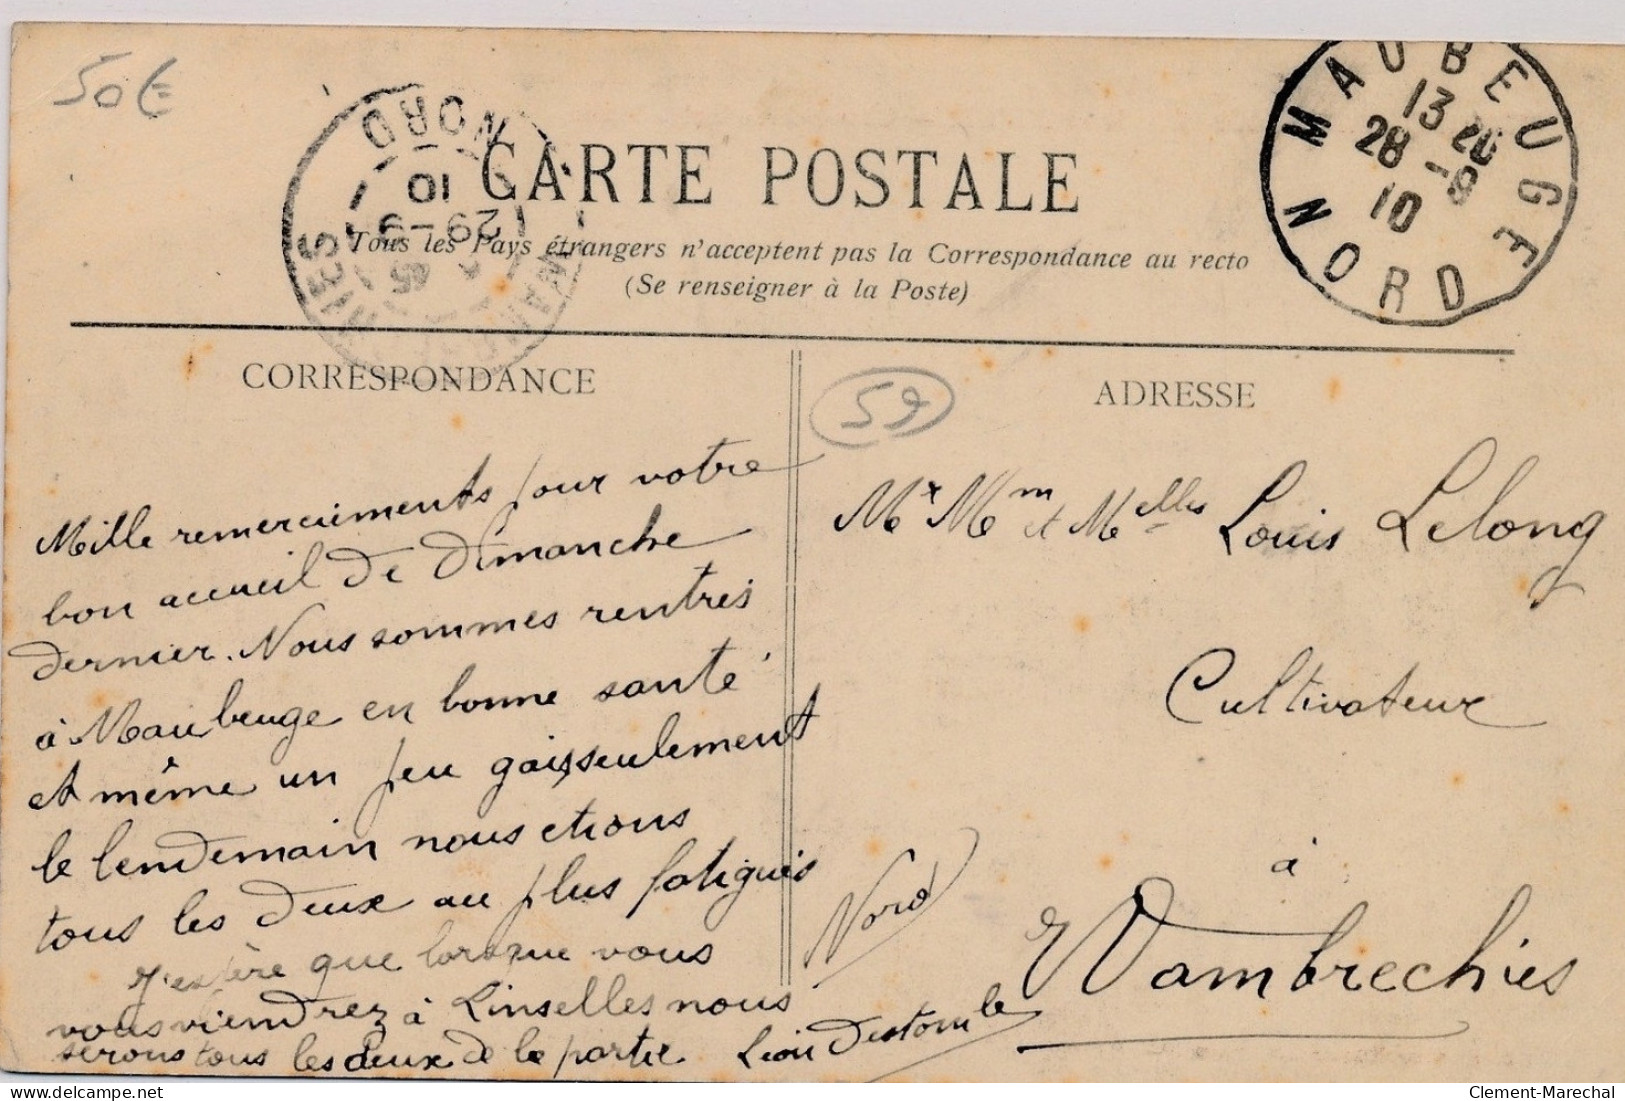 50€
MAUBEUGE
13 20
28 -9
10
NORD
NORD
10
29-9
CARTE POSTALE
Tous les Pays étrangers n'acceptent pas la Correspondance au recto
(Se renseigner à la Poste)
CORRESPONDANCE
Mille remerciments pour votre
bon accueil de dimanche
dernier. Nous sommes rentrés
à Maubeuge en bonne santé
et même un peu gais, seulement
le lendemain nous etions
tous les deux au plus fatigués
J'espère que lorsque vous
vous viendrez à Linselles nous
serons tous les deux de la partie
Léon Destombe
59
ADRESSE
Mr Mm et Melles Louis Lelong
Cultivateur
à
Wambrechies
Nord
delcampe.net
Clement-Marechal